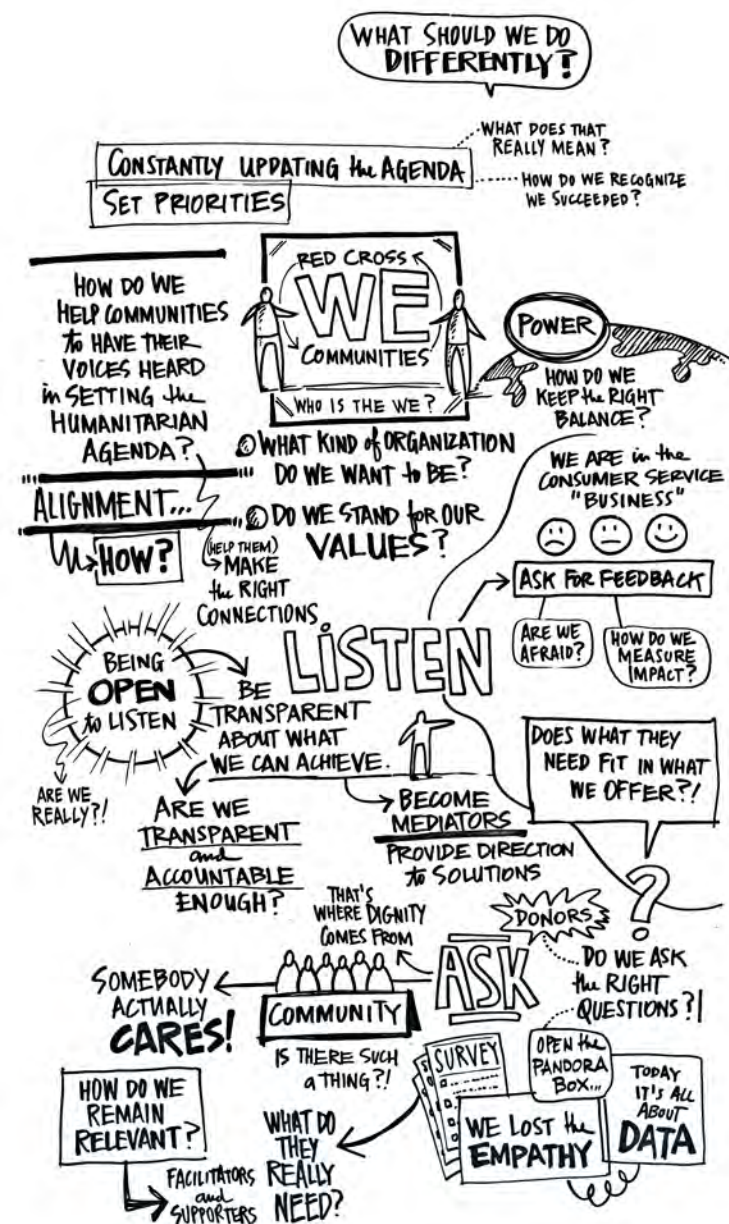 WHAT SHOULD WE DO
DIFFERENTLY?
CONSTANTLY UPDATING the AGENDA
WHAT DOES THAT
REALLY MEAN?
HOW DO WE RECOGNIZE
WE SUCCEEDED?
SET PRIORITIES
HOW DO WE
HELP COMMUNITIES
to HAVE THEIR
VOICES HEARD
in SETTING the
HUMANITARIAN
AGENDA?
RED CROSS
WE
COMMUNITIES
WHO IS THE WE?
POWER
HOW DO WE
KEEP the RIGHT
BALANCE?
WHAT KIND of ORGANIZATION
DO WE WANT to BE?
DO WE STAND for OUR
VALUES?
ALIGNMENT...
HOW?
(HELP THEM)
MAKE
the RIGHT
CONNECTIONS
WE ARE in the
CONSUMER SERVICE
"BUSINESS"
ASK FOR FEEDBACK
ARE WE
AFRAID?
HOW DO WE
MEASURE
IMPACT?
LISTEN
BEING
OPEN
to LISTEN
ARE WE
REALLY?!
BE
TRANSPARENT
ABOUT WHAT
WE CAN ACHIEVE.
ARE WE
TRANSPARENT
and
ACCOUNTABLE
ENOUGH?
BECOME
MEDIATORS
PROVIDE DIRECTION
to SOLUTIONS
DOES WHAT THEY
NEED FIT IN WHAT
WE OFFER?!
?
THAT'S
WHERE DIGNITY
COMES FROM
ASK
DONORS
DO WE ASK
the RIGHT
QUESTIONS?!
SOMEBODY
ACTUALLY
CARES!
COMMUNITY
IS THERE SUCH
a THING?!
SURVEY
OPEN the
PANDORA
BOX...
WE LOST the
EMPATHY
TODAY
IT'S ALL
ABOUT
DATA
HOW DO WE
REMAIN
RELEVANT?
FACILITATORS
and
SUPPORTERS
WHAT DO
THEY
REALLY
NEED?